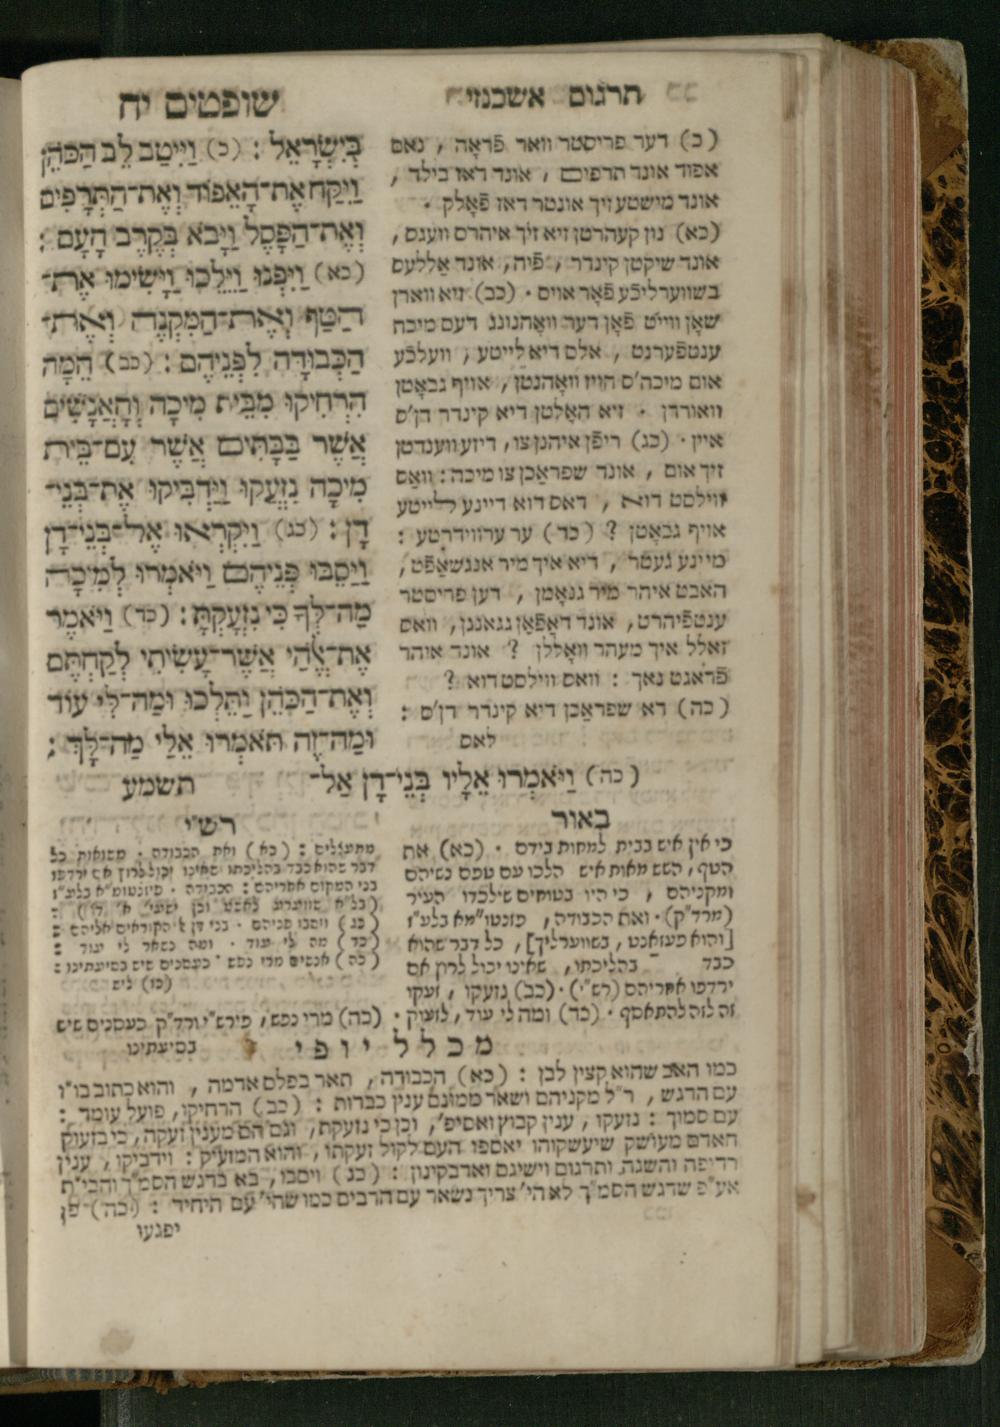 תרגום אשכנזי
שופטים יח
(כ) דער פריסטר וואר פֿראָה, נאם
אפוד אונד תרפים, אונד דאז בילד,
אונד מישטע זיך אונטר דאז פֿאָלק.
(כא) נון קעהרטן זיא זיך איהרס וועגס,
אונד שיקטן קינדר, פֿיה, אונד אַללעס
בשווערליכֿע פֿאָר אויס. (כב) זיא ווארן
שאָן ווייט פֿאָן דער וואָהנונג דעם מיכה
ענטפֿערנט, אלס דיא לייטע, וועלכֿע
אום מיכה'ס הויז וואָהנטן, אויף גבאָטן
וואורדן. זיא האָלטן דיא קינדר דן'ס
איין. (כג) ריפֿן איהנן צו, דיזע ווענדטן
זיך אום, אונד שפראַכן צו מיכה: וואָס
ווילסט דוא, דאס דוא דיינע לייטע
אויף גבאָטן? (כד) ער ערווידרטע:
מיינע געטר, דיא איך מיר אנגשאַפֿט,
האבט איהר מיר גנאָמן, דען פריסטר
ענטפֿיהרט, אונד דאַפֿאָן גגאנגן, וואס
זאלל איך מעהר וואָללן? אונד איהר
פֿראגט נאך: וואס ווילסט דוא?
(כה) דא שפראַכן דיא קינדר דן'ס:
לאס
בְּיִשְׂרָאֵל: (כ) וַיִּיטַב לֵב הַכֹּהֵן
וַיִּקַּח אֶת־הָאֵפוֹד וְאֶת־הַתְּרָפִים
וְאֶת־הַפָּסֶל וַיָּבֹא בְּקֶרֶב הָעָם:
(כא) וַיִּפְנוּ וַיֵּלֵכוּ וַיָּשִׂימוּ אֶת־
הַטַּף וְאֶת־הַמִּקְנֶה וְאֶת־
הַכְּבוּדָּה לִפְנֵיהֶם: (כב) הֵמָּה
הִרְחִיקוּ מִבֵּית מִיכָה וְהָאֲנָשִׁים
אֲשֶׁר בַּבָּתִּים אֲשֶׁר עִם־בֵּית
מִיכָה נִזְעֲקוּ וַיַּדְבִּיקוּ אֶת־בְּנֵי־
דָן: (כג) וַיִּקְרְאוּ אֶל־בְּנֵי־דָן
וַיַּסֵּבּוּ פְּנֵיהֶם וַיֹּאמְרוּ לְמִיכָה
מַה־לְּךָ כִּי נִזְעָקְתָּ: (כד) וַיֹּאמֶר
אֶת־אֱלֹהַי אֲשֶׁר־עָשִׂיתִי לְקַחְתֶּם
וְאֶת־הַכֹּהֵן וַתֵּלְכוּ וּמַה־לִּי עוֹד
וּמַה־זֶּה תֹּאמְרוּ אֵלַי מַה־לָּךְ:
(כה) וַיֹּאמְרוּ אֵלָיו בְּנֵי־דָן אַל־
תשמע
באור
כי אין איש בבית למחות בידם. (כא) את
הטף, השש מאות איש הלכו עם טפם נשיהם
ומקניהם, כי היו בטוחים שילכדו העיר
(מרד"ק). ואת הכבודה, בלע"ז
[והוא בשווערליך], כל דבר שהוא
כבד בהליכתו, שאינו יכול לרוץ אם
ירדפו אחריהם (רש"י). (כב) נזעקו, זעקו
זה לזה להתאסף. (כד) ומה לי עוד, לזעוק. (כה) מרי נפש, פירש"י ורד"ק כעסנים שיש
בסיעתינו
רש"י
מתעצלים: (כא) ואת הכבודה. משואות כל
דבר שהוא כבד בהליכתו שאינו יכול לרוץ אם ירדפו
בני המקום אחריהם: הכבודה. בלע"ז
(כג) ויסבו פניהם. בני דן אל הקוראים אליהם:
(כד) מה לי עוד. ומה נשאר לי עוד:
(כה) אנשים מרי נפש. כעסנים שיש בסיעתינו:
(כז) ליש
מכלל יופי
כמו האב שהוא קצין לבן: (כא) הכבודה, תאר בפלס אדמה, והוא כתוב בו"ו
עם הדגש, ר"ל מקניהם ושאר ממונם ענין כבדות: (כב) הרחיקו, פועל עומד:
עם סמוך: נזעקו, ענין קבוץ ואסיפ', וכן כי נזעקת, וגם הם מענין זעקה, כי בזעוק
האדם מעושק שיעשקוהו יאספו העם לקול זעקתו, והוא המזעיק: וידביקו, ענין
רדיפה והשגה, ותרגום וישיגם ואדבקינון: (כג) ויסבו, בא בדגש הסמ"ך והבי"ת
אע"פ שדגש הסמ"ך לא הי' צריך נשאר עם הרבים כמו שהי' עם היחיד: (כה) פן
יפגעו